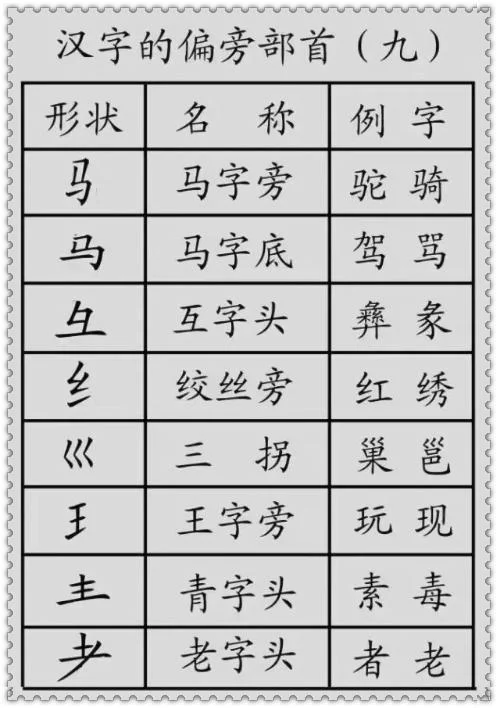 汉字的偏旁部首（九）
形状 名称 例字
马 马字旁 驼 骑
马 马字底 驾 骂
彑 互字头 彝 彖
纟 绞丝旁 红 绣
巛 三拐 巢 邕
王 王字旁 玩 现
龶 青字头 素 毒
耂 老字头 者 老